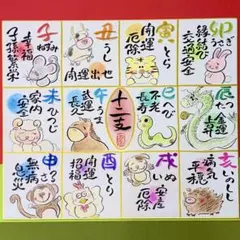 子 ねずみ
幸福
子孫繁栄
丑 うし
開運出世
寅 とら
開運
厄除
卯 うさぎ
縁結び
交通安全
未 ひつじ
家内
安全
午 うま
武運
長久
十二支
巳 へび
不老
長寿
辰 たつ
申 さる
無病
息災
酉 とり
開運
招福
戌 いぬ
安産
厄除
亥 いのしし
病気
平癒